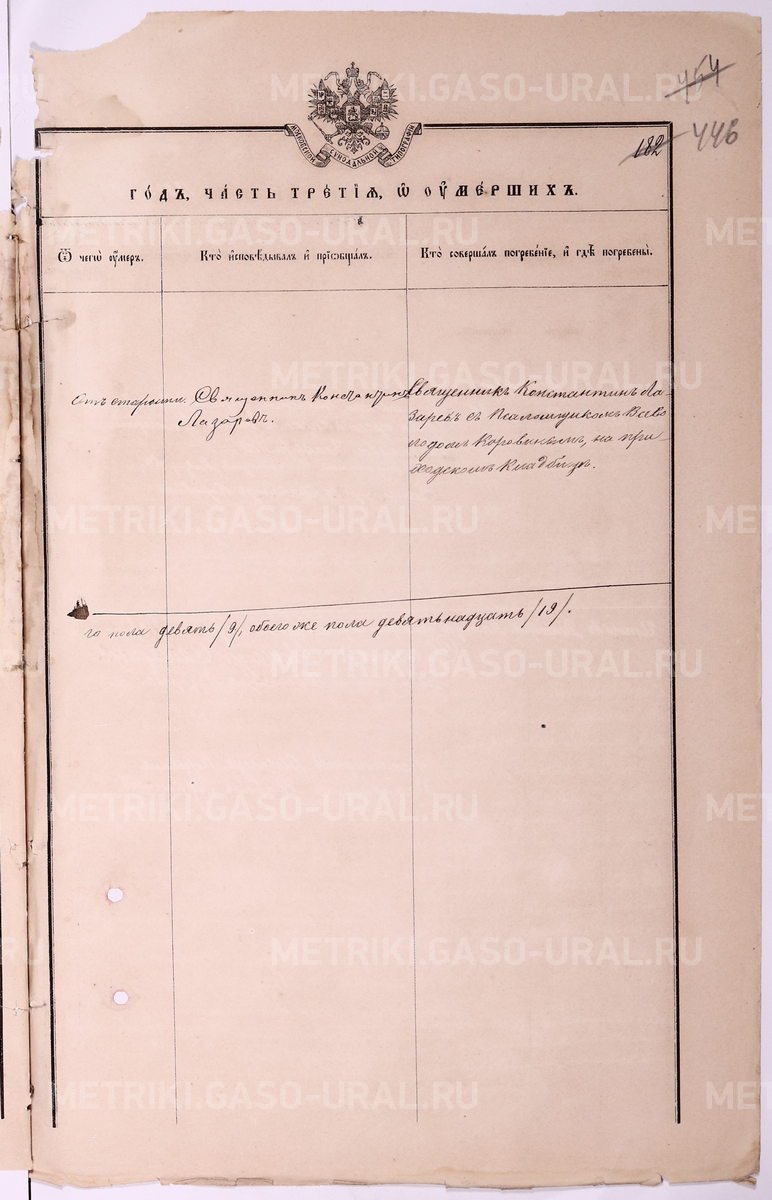 454
446
182
МОСКОВСКОЙ СѴНОДАЛЬНОЙ ТИПОГРАФІИ
ГО́ДЪ, ЧА́СТЬ ТРЕ́ТІѦ, Ѡ҆ ОУ҆МЕ́РШИХЪ.
Ѿ чегѡ̀ оу҆́меръ.
Кто̀ и҆сповѣ́дывалъ и҆ прїѡбща́лъ.
Кто̀ соверша́лъ погребе́нїе, и҆ гдѣ̀ погребены̀.
Отъ старости.
Священникъ Константинъ
Лазаревъ.
Священникъ Константинъ Ла
заревъ съ Псаломщикомъ Всево
лодомъ Коровинымъ, на при
ходскомъ кладбищѣ.
го пола девять /9/, обоего же пола девятьнадцать /19/.
METRIKI.GASO-URAL.RU